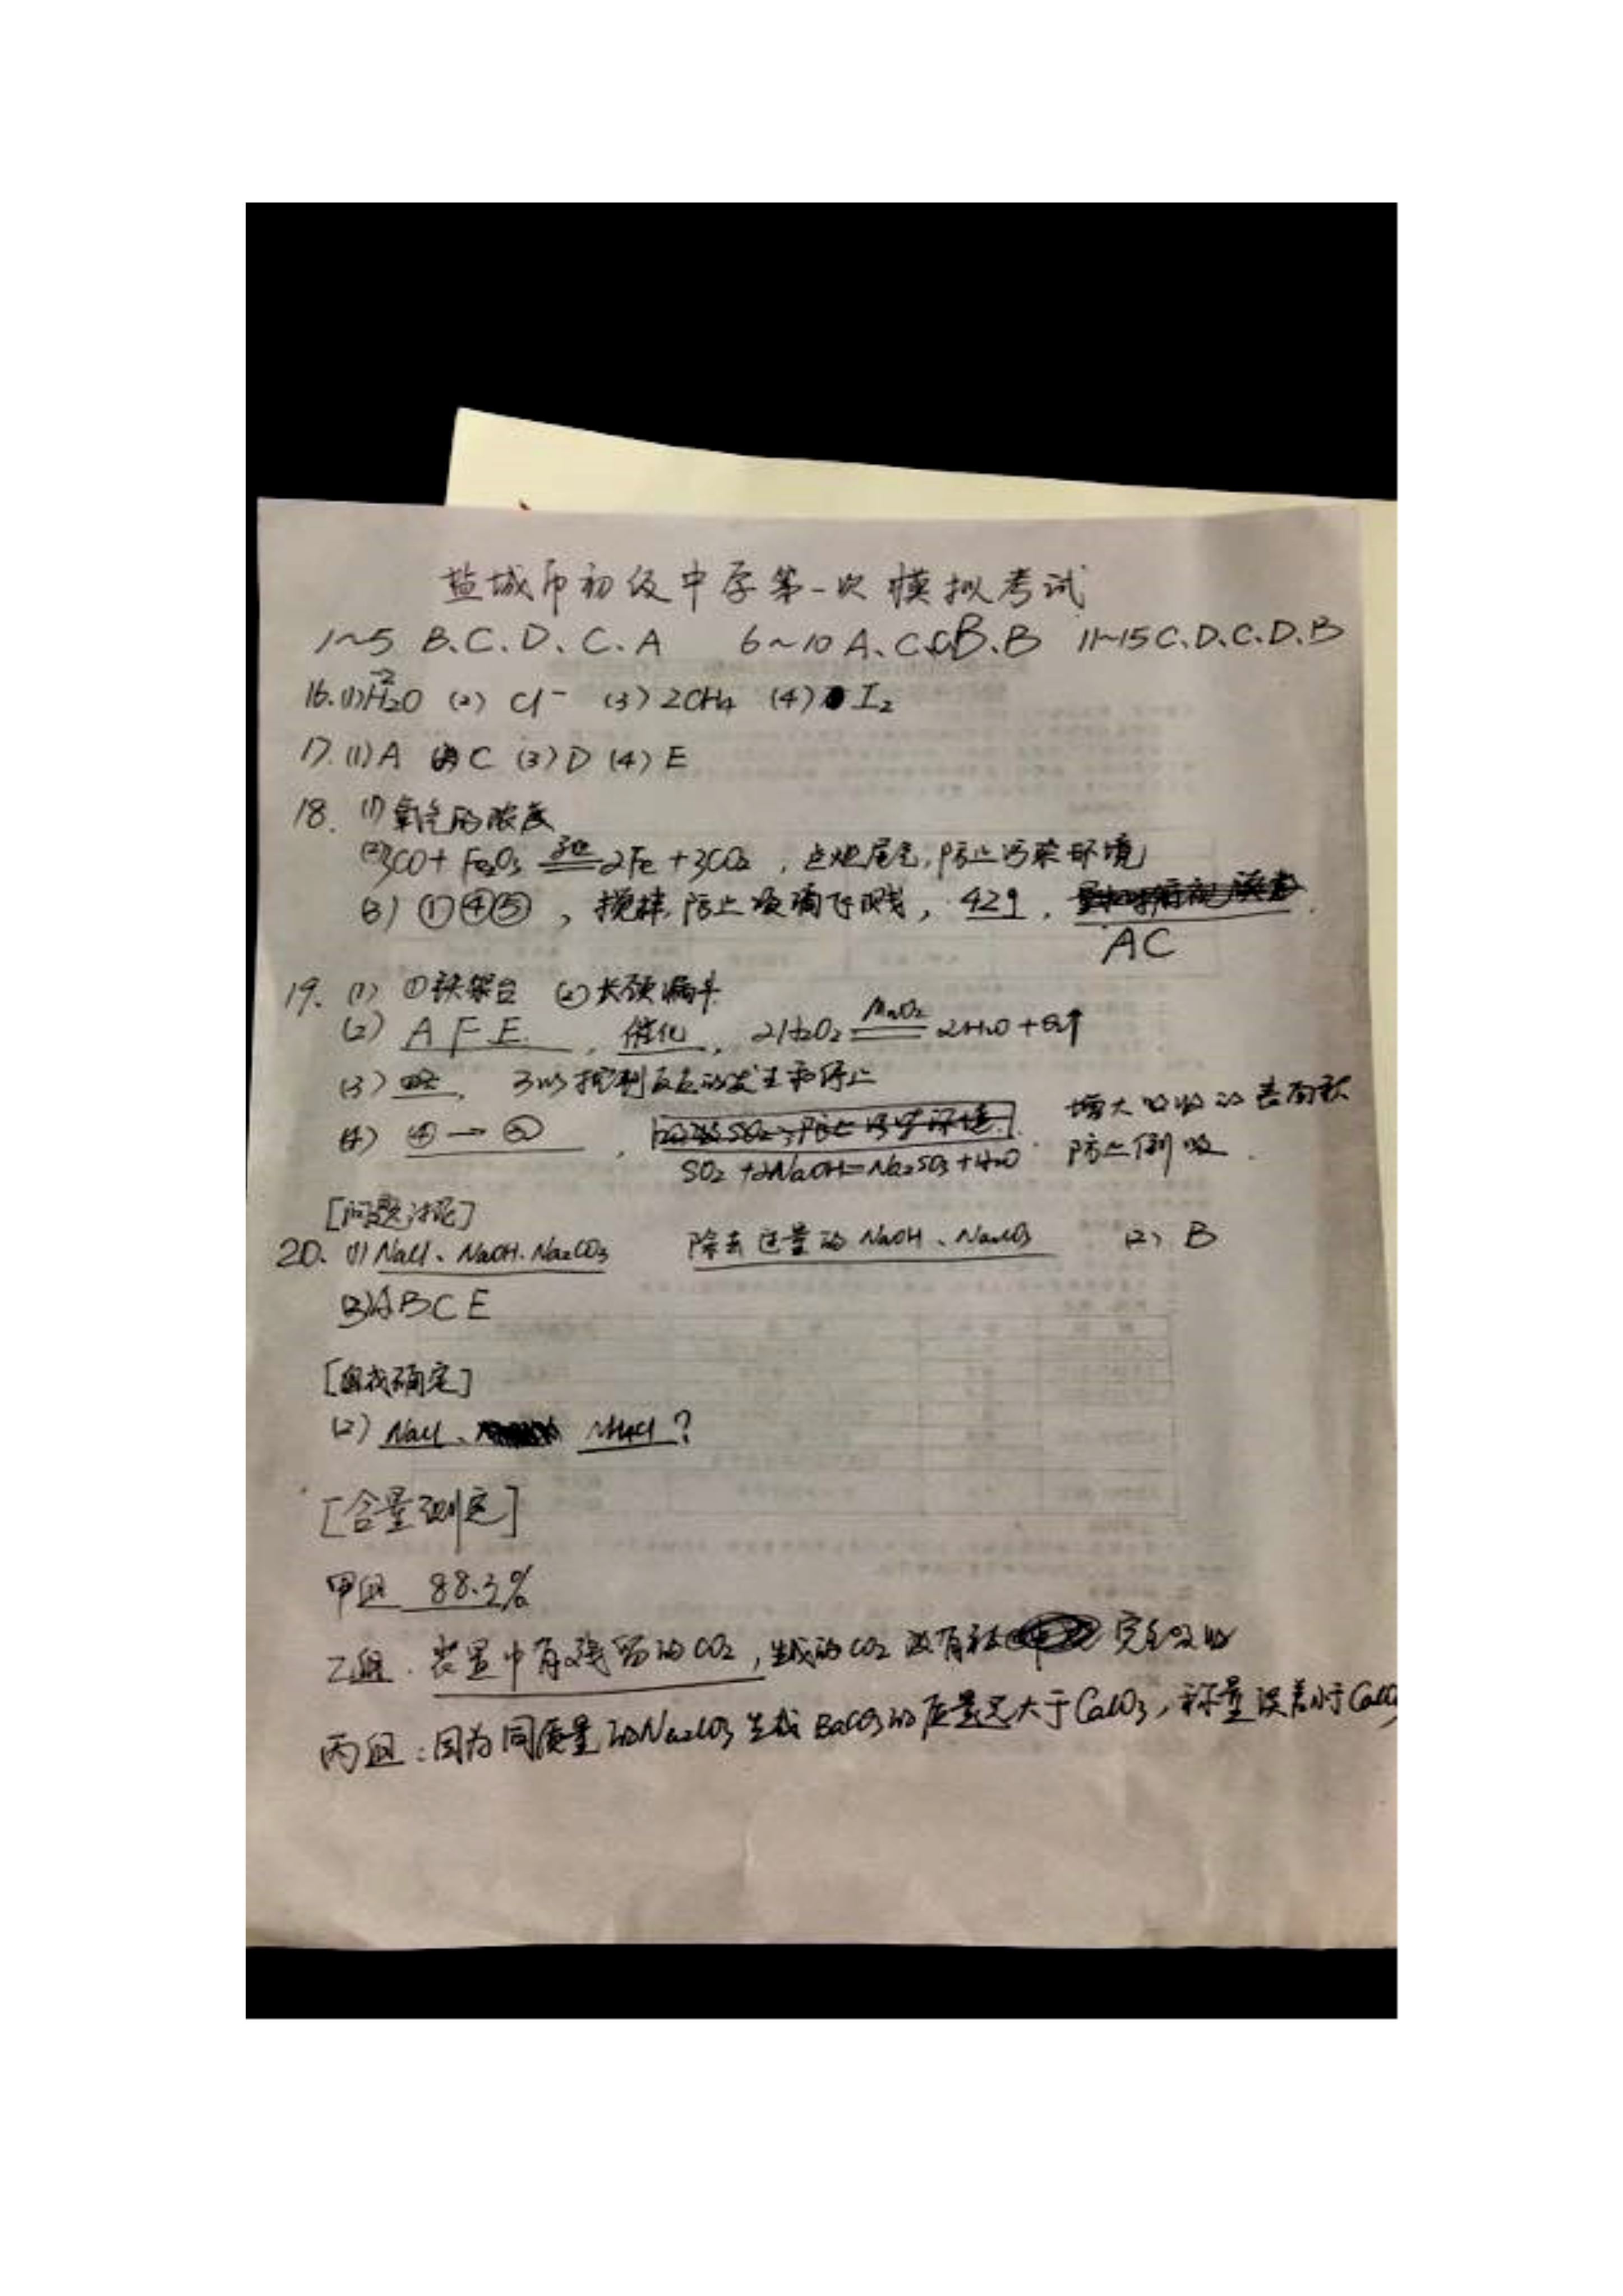 盐城市初级中学第一次模拟考试
1~5 B、C、D、C、A 6~10 A、C、C、B、B 11~15 C、D、C、D、B
16.(1)H₂O (2) Cl⁻ (3) 2CH₄ (4) I₂
17.(1)A C (3) D (4) E
18. (1) 氧气的浓度
(2)3CO + Fe₂O₃ 高温 2Fe + 3CO₂ , 点燃尾气,防止污染环境
(3) ①④⑤ , 搅拌,防止液滴飞溅, 42g ,
AC
19. (1) ①铁架台 ②长颈漏斗
(2) A F E , 催化 , 2H₂O₂ MnO₂ 2H₂O + O₂↑
(3) 略, 可以控制反应的发生和停止
(4) ④ → ⑤ , 增大吸收的表面积
SO₂ + 2NaOH = Na₂SO₃ + H₂O 防止倒吸.
[问题讨论]
20. (1) NaCl、NaOH、Na₂CO₃ 除去过量的 NaOH、Na₂CO₃ (2) B
(3)ABCE
[自我确定]
(2) NaCl、 NH₄Cl ?
[含量测定]
甲组 88.3%
乙组. 装置中有残留的CO₂,生成的CO₂没有被 完全吸收
丙组:因为同质量的Na₂CO₃生成BaCO₃的质量远大于CaCO₃,称量误差小于